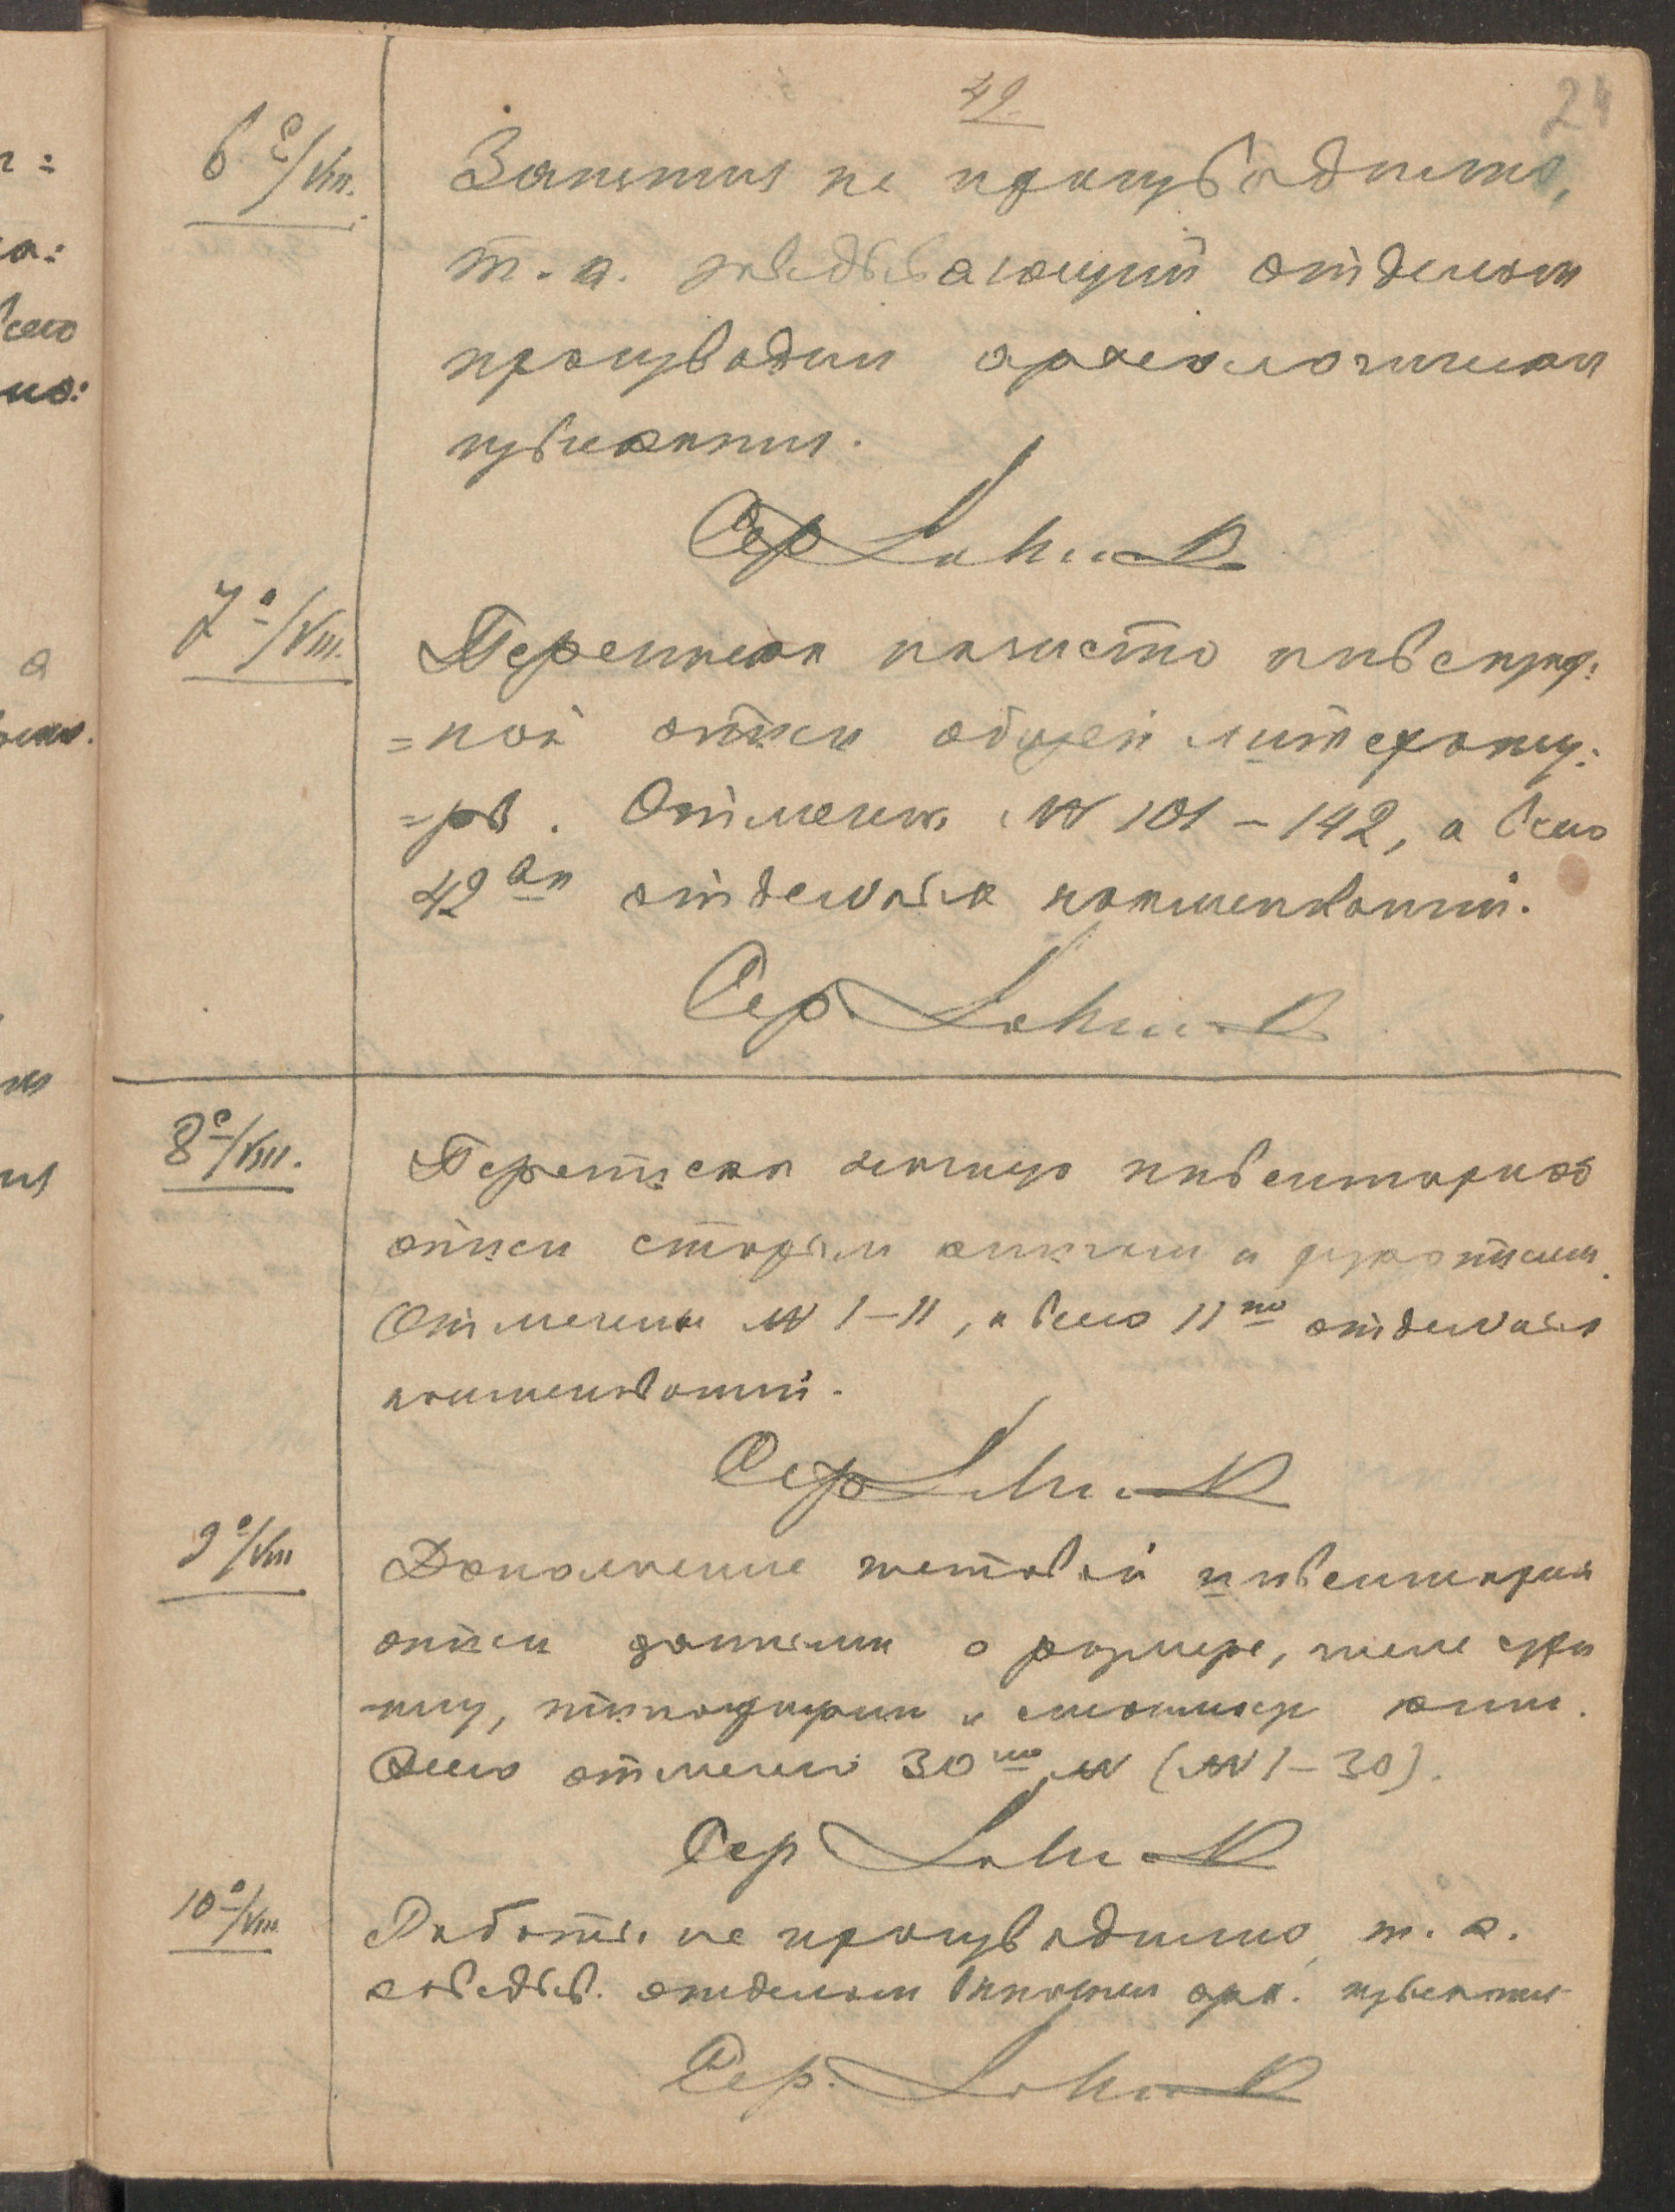 42
24
6 е/VIII.
Занятия не производились,
т. к. заведывающий отделом
производил археологические
изыскания.
Сер
7 е/VIII.
Переписка начисто инвентар:
=ной описи общей литерату:
=ры. Отмечены №№ 101 – 142, а всего
42 ва отдельных наименований.
Сер
8 е/VIII.
Переписка начисто инвентарной
описи старым книгам и рукописям.
Отмечены №№ 1–11, а всего 11 ть отдельных
наименований.
Сер
9 е/VIII
Дополнение инвентарной
описи данными о размере, числе стра
ниц, типографии и книг.
Всего отмечено 30 ть №№ (№№ 1–30).
Сер
10 е/VIII
Работы не производились, т. к.
заведыв. отделом арх. изыскания
Сер.